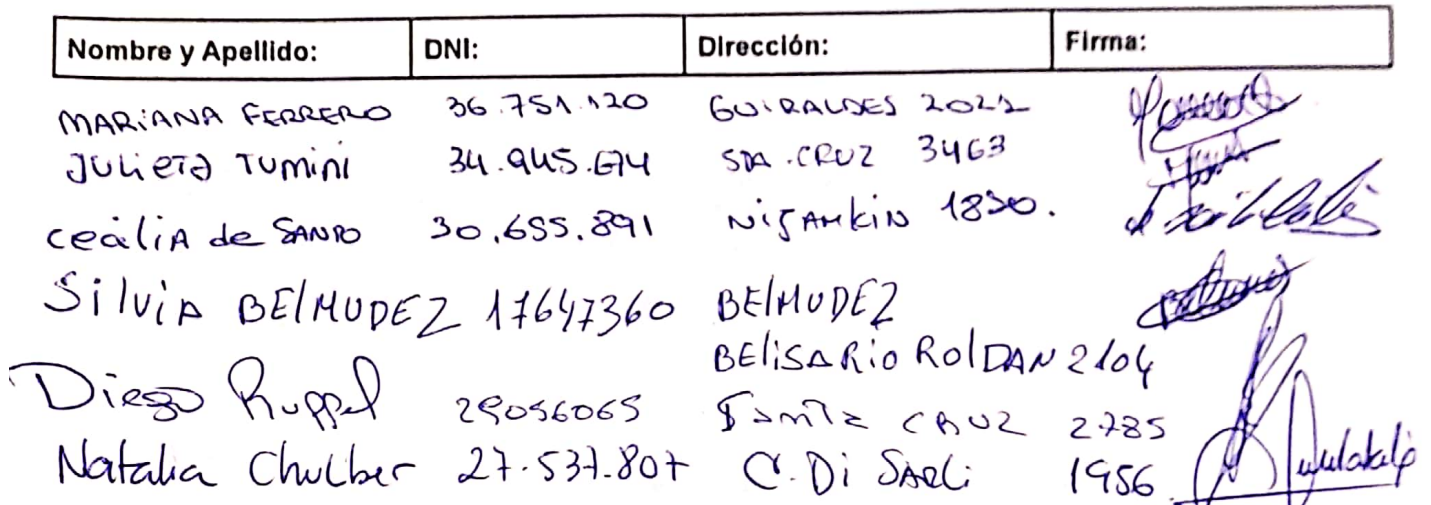 Nombre y Apellido: DNI: Dirección: Firma:
MARIANA FERRERO 36.751.120 GUIRALDES 2022
JULIETA TUMINI 34.945.674 STA.CRUZ 3463
Cecilia de SANDO 30.655.891 NIJAMKIN 1830.
Silvia BElMUDEZ 17647360 BElMUDEZ
BELISARIO ROlDAN 2104
Diego Ruppel 29056065 Santa CRUZ 2785
Natalia Chulber 27.537.807 C. Di SARLi 1956